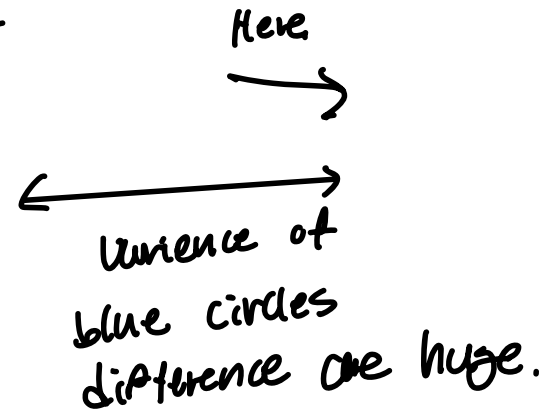 Here
Varience of
blue circles
difference are huge.